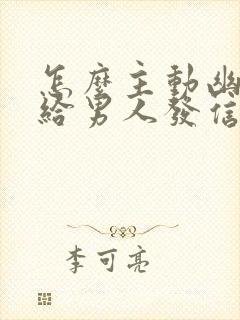 怎麼主動幽
給男人發信
李可亮